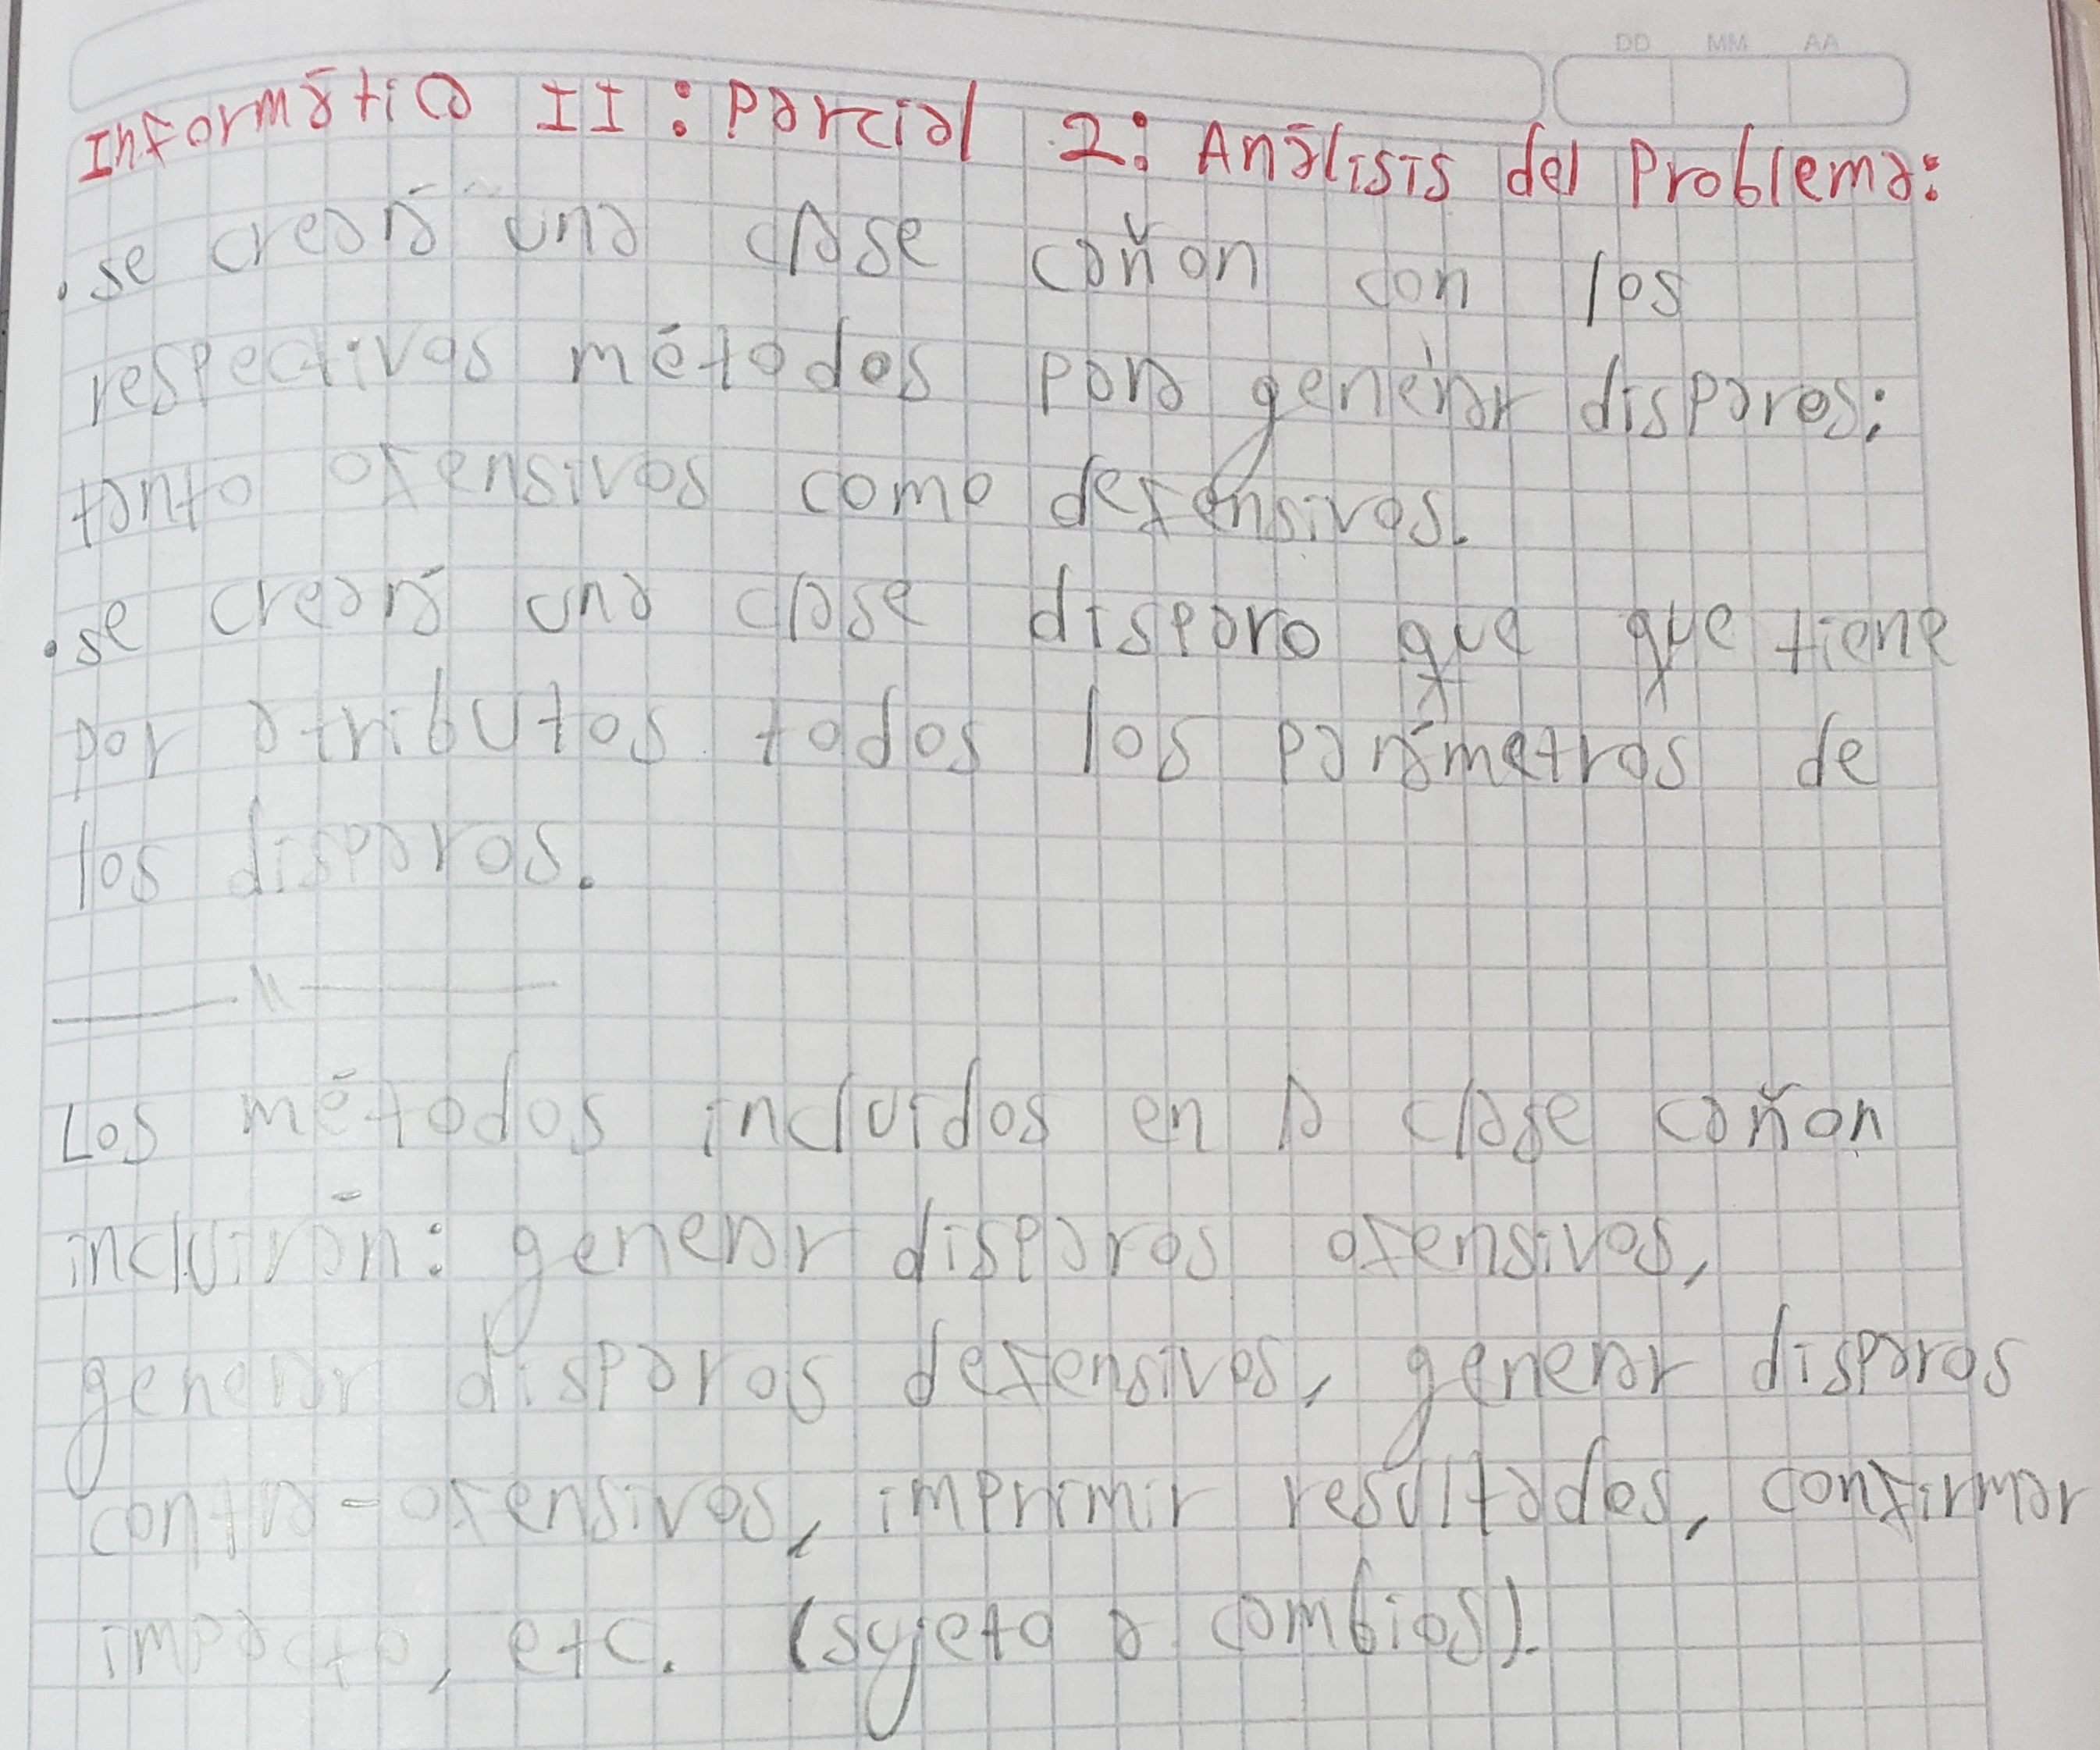 DD MM AA
Informática II: Parcial 2: Análisis del Problema:
• se creará una clase cañon con los
respectivos métodos para generar disparos;
tanto ofensivos como defensivos.
• se creará una clase disparo que que tiene
por atributos todos los parámetros de
los disparos.
—— \\ ——
Los métodos incluidos en la clase cañon
incluirán: generar disparos ofensivos,
generar disparos defensivos, generar disparos
contra-ofensivos, imprimir resultados, confirmar
impacto, etc. (sujeto a cambios).